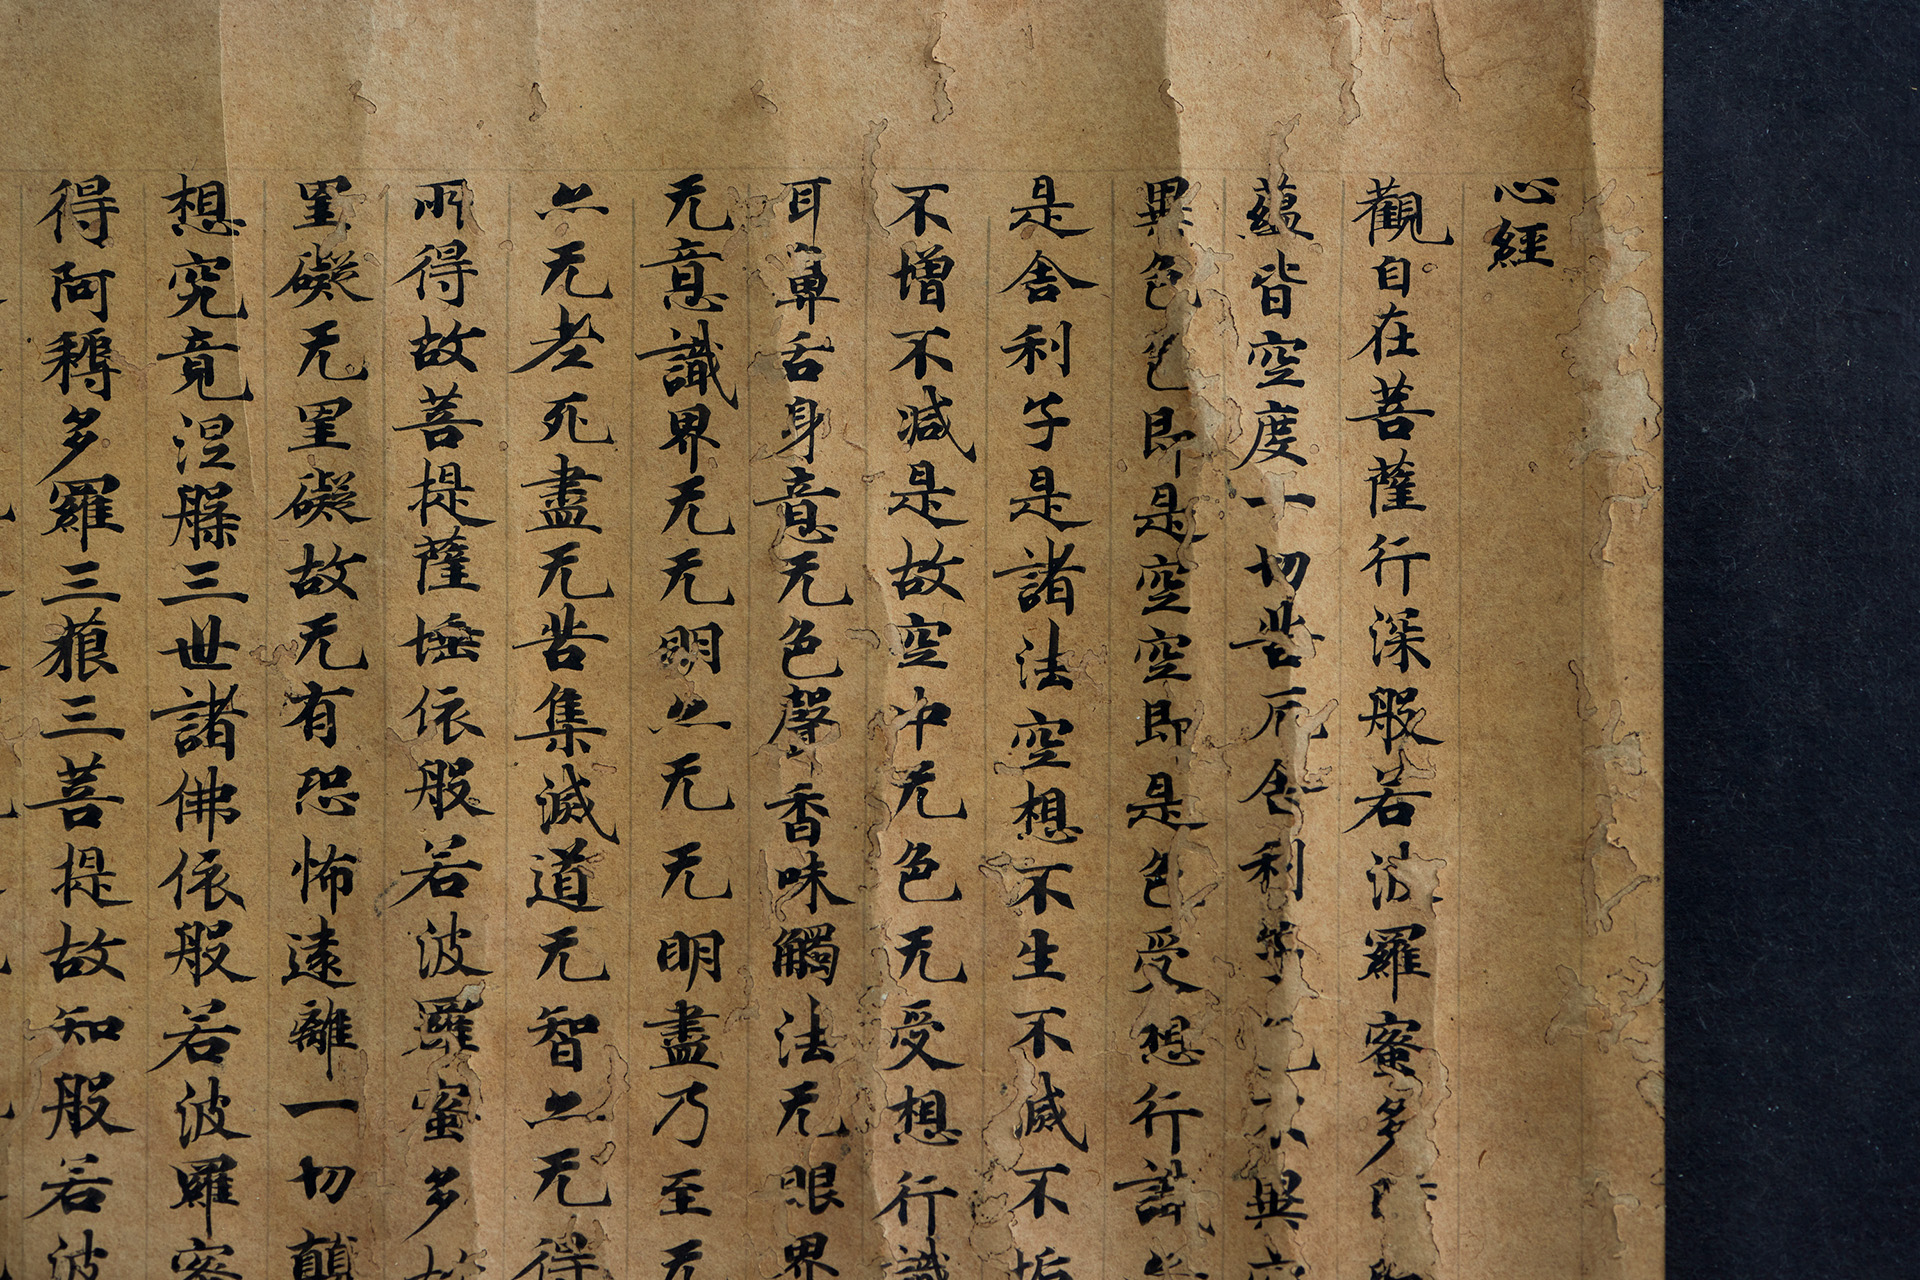 心經
觀自在菩薩行深般若波羅蜜多時
蘊皆空度一切苦厄舍利子色不異空
異色色即是空空即是色受想行識
是舍利子是諸法空想不生不滅不垢
不增不減是故空中无色无受想行識
耳鼻舌身意无色聲香味觸法无眼界
无意識界无无明亦无无明盡乃至无
亦无老死盡无苦集滅道无智亦无得
所得故菩提薩埵依般若波羅蜜多故
罣礙无罣礙故无有恐怖遠離一切顛
想究竟涅槃三世諸佛依般若波羅蜜
得阿耨多羅三藐三菩提故知般若波